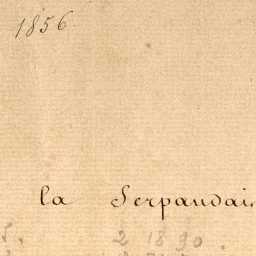 1856
la Serpaudai
2 18 90